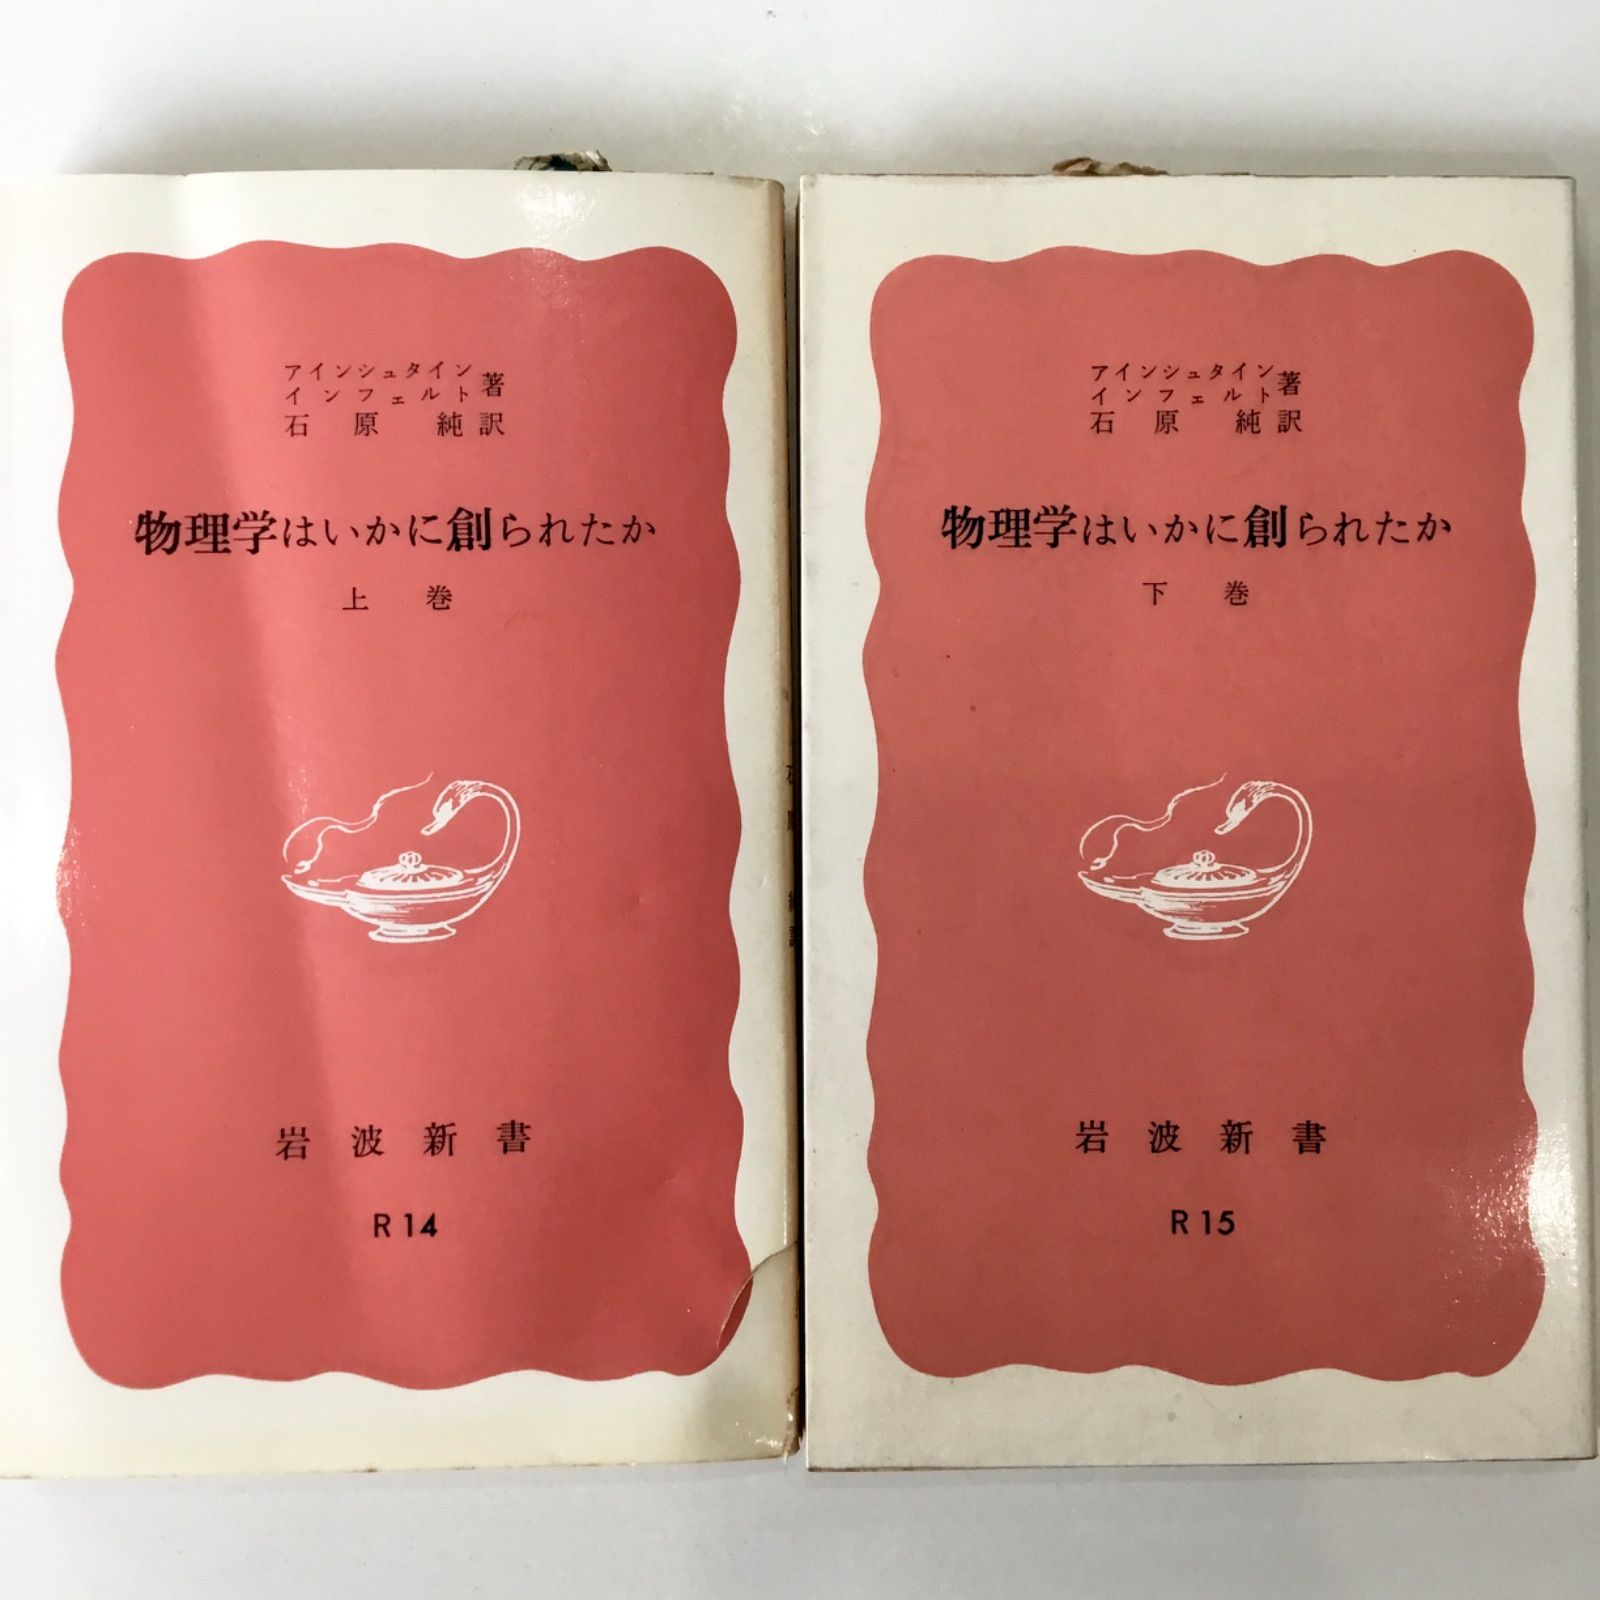 アインシュタイン
インフェルト 著
石原 純 訳
物理学はいかに創られたか
上巻
岩波新書
R 14
アインシュタイン
インフェルト 著
石原 純 訳
物理学はいかに創られたか
下巻
岩波新書
R 15